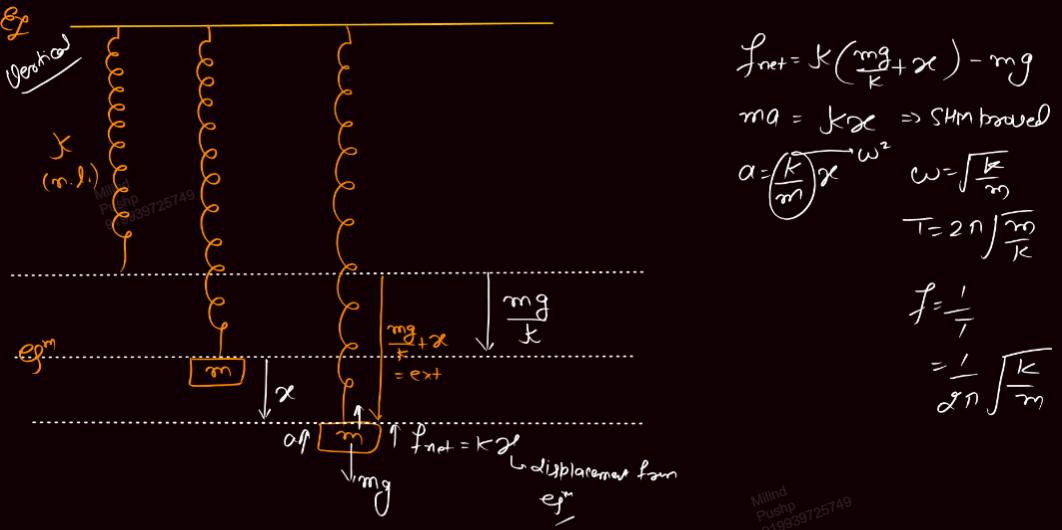 Eg
Vertical
K
(n.l.)
Milind
Pushp
919939725749
eqᵐ
m
x
mg/k + x
= ext
mg/k
a↑
m
↑ fnet = kx
↳ displacement from
eqᵐ
mg
fnet = k(mg/k + x) - mg
ma = kx ⇒ SHM proved
a = (k/m)x → ω²
ω = √(k/m)
T = 2π√(m/k)
f = 1/T
= 1/2π √(k/m)
Milind
Pushp
919939725749